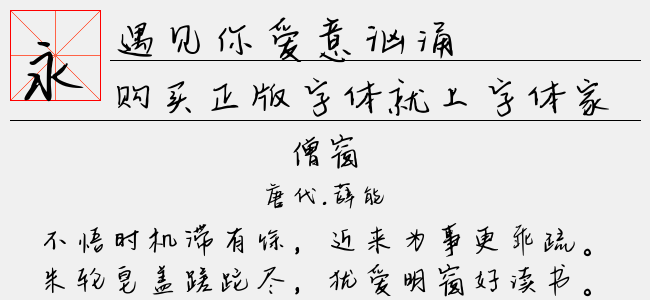 永
遇见你爱意汹涌
购买正版字体就上字体家
僧窗
唐代.薛能
不悟时机滞有馀，近来为事更乖疏。
朱轮皂盖蹉跎尽，犹爱明窗好读书。